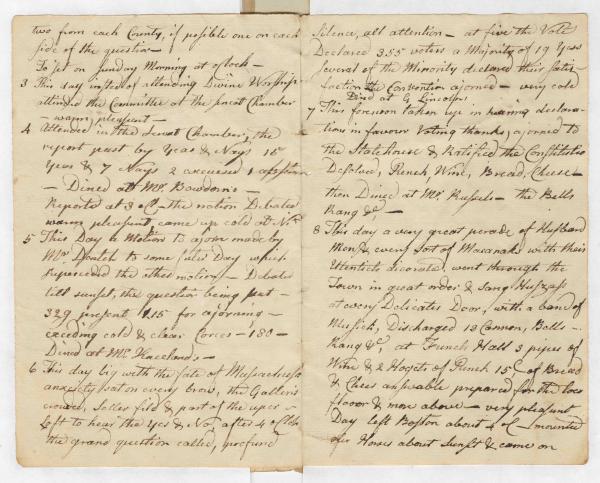 two from each County, if posible one on each
side of the question—
To set on Sunday Morning at oClock—
3 This day insted of attending Divine Worship
attended the Committee at the Senat Chamber—
— warm, pleasent—
4 Attended in the Senat Chamber, the
report past by Yeas & Nays 15
Yeas & 7 Nays 2 excused 1 absent
— Dined at Mr. Bawdoin's—
Reported at 3 oC— the motion Debated
warm pleasent, came up cold at N
5 This Day a Motion to ajorn made by
Mr to some futer Day which
superceded the other motion— Debate
till sunset, the question being put—
329 present 115 for ajorning—
exceding cold & clear Corces—180—
Dined at Mr.
6 This day big with the fate of Massachusets
anxiety sat on every brow, the Galleries
crowded, Soller fild & part of the uper—
loft to hear the Yes & No, after 4 oClok
the grand question called, profound
Silence, all attention— at five the Vote
Declared 355 voters a Majority of 19 Yeas
several of the Minority declared their satis
faction the Convention ajorned— very cold
Dined at G Lincolns
7 This forenoon taken up in hearing declara
tions in favour Voting thanks, ajorned to
the Statehouse & Ratified the Constitutio
Desolved, Punch, Wine, Bread, Cheese—
then Dined at Mr. Russels— the Bells
Rang &c—
8 This day a very great perade of Husband
Men & every Sort of Macanaks with their
Utenticls dicorated, went through the
Town in great order & Sang Huzzass
at every Delicates Door, with a band of
Mussick, Discharged 13 Cannon, Bells—
Rang &c, at Funch Hall 3 pipes of
Wine & 2 Hogsts of Punch 15C of Bread
& Chees answable prepared for the loer
floor & more above— very pleasent
Day left Boston about 4 oC— mounted
our Horses about Sunset & came on